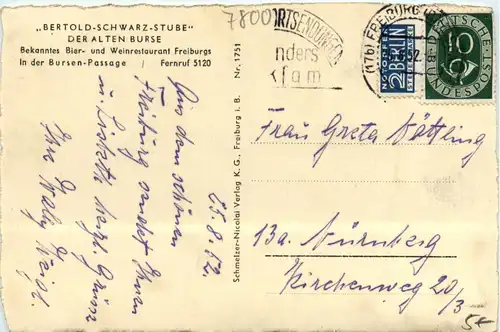 „BERTOLD-SCHWARZ-STUBE"
DER ALTEN BURSE
Bekanntes Bier- und Weinrestaurant Freiburgs
In der Bursen-Passage / Fernruf 5120
25.8.52.
Aus dem schönen
Freiburg sendet Ihnen
u. herzl. Grüsse
Ihre
Schmelzer-Nicolai Verlag K. G., Freiburg i. B. Nr. 1751
7800
ORTSENDUNGEN
nders
am
(17b) FREIBURG
52
NOTOPFER
2 BERLIN
STEUERMARKE
DEUTSCHE
10
BUNDESPOST
Frau Greta Nöttling
13a. Nürnberg
Kirchenweg 20/3
5€